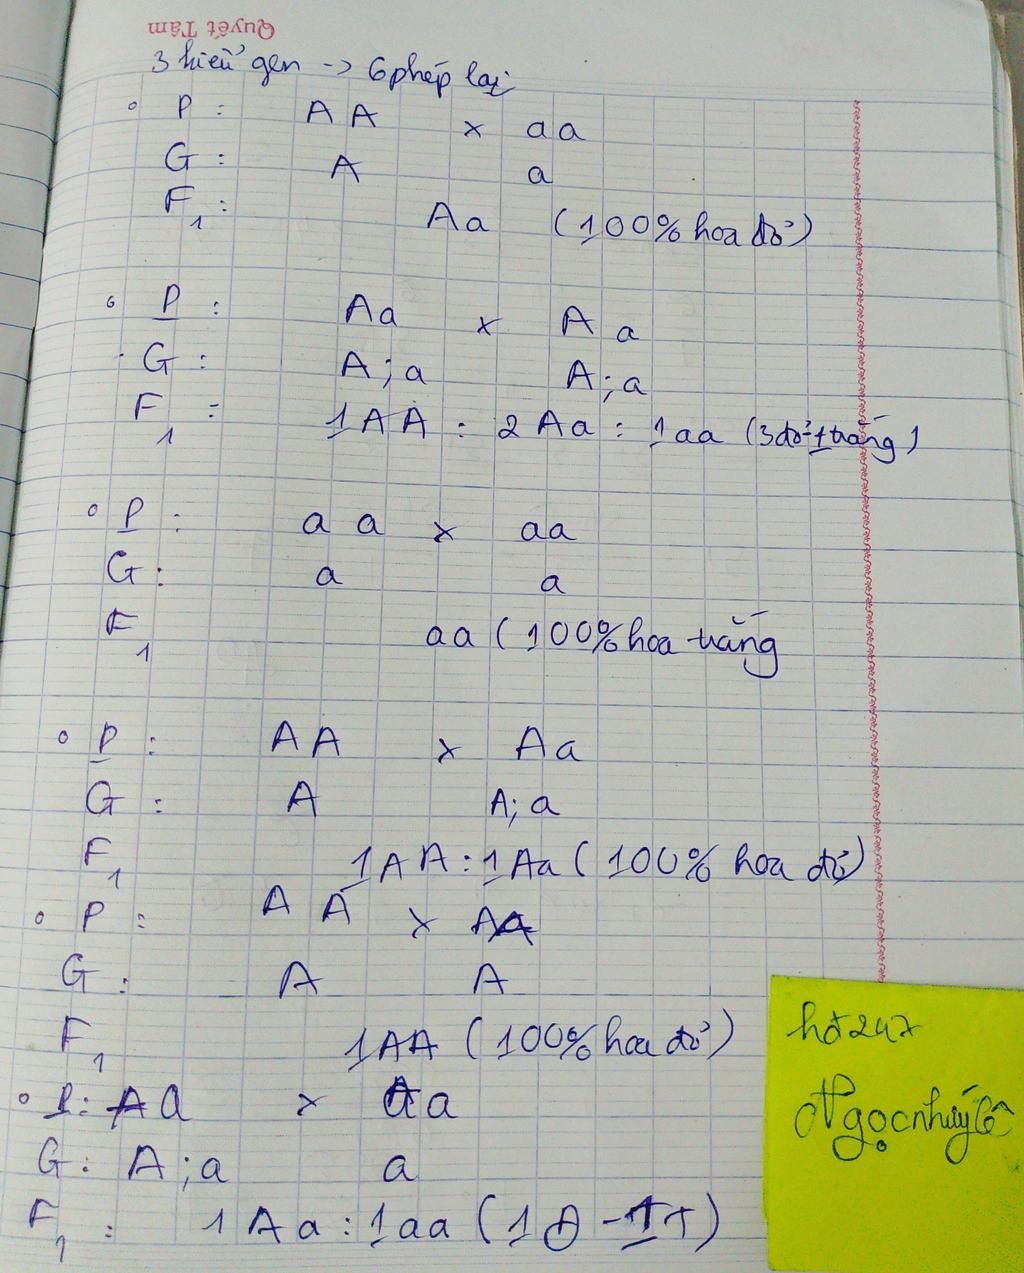 Quyết Tâm
3 kiểu gen -> 6 phép lai
P : AA x aa
G : A a
F1 : Aa (100% hoa đỏ)
P : Aa x Aa
G : A ; a A ; a
F1 : 1AA : 2Aa : 1aa (3 đỏ : 1 trắng)
P : aa x aa
G : a a
F1 aa (100% hoa trắng
P : AA x Aa
G : A A; a
F1 1AA : 1Aa (100% hoa đỏ)
P : AA x AA
G : A A
F1 1AA (100% hoa đỏ)
P : Aa x aa
G : A ; a a
F1 : 1Aa : 1aa (1Đ - 1T)
hđ247